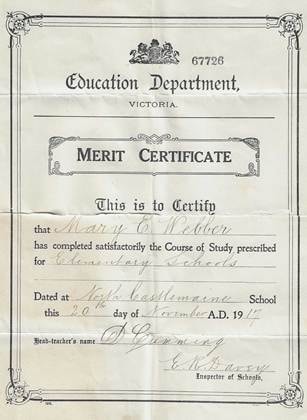 67726
Education Department,
VICTORIA.
MERIT CERTIFICATE
This is to Certify
that Mary E Webber
has completed satisfactorily the Course of Study prescribed
for Elementary Schools
Dated at North Castlemaine School
this 20th day of November A.D. 1917
Head-teacher's name D Cumming
Inspector of Schools.